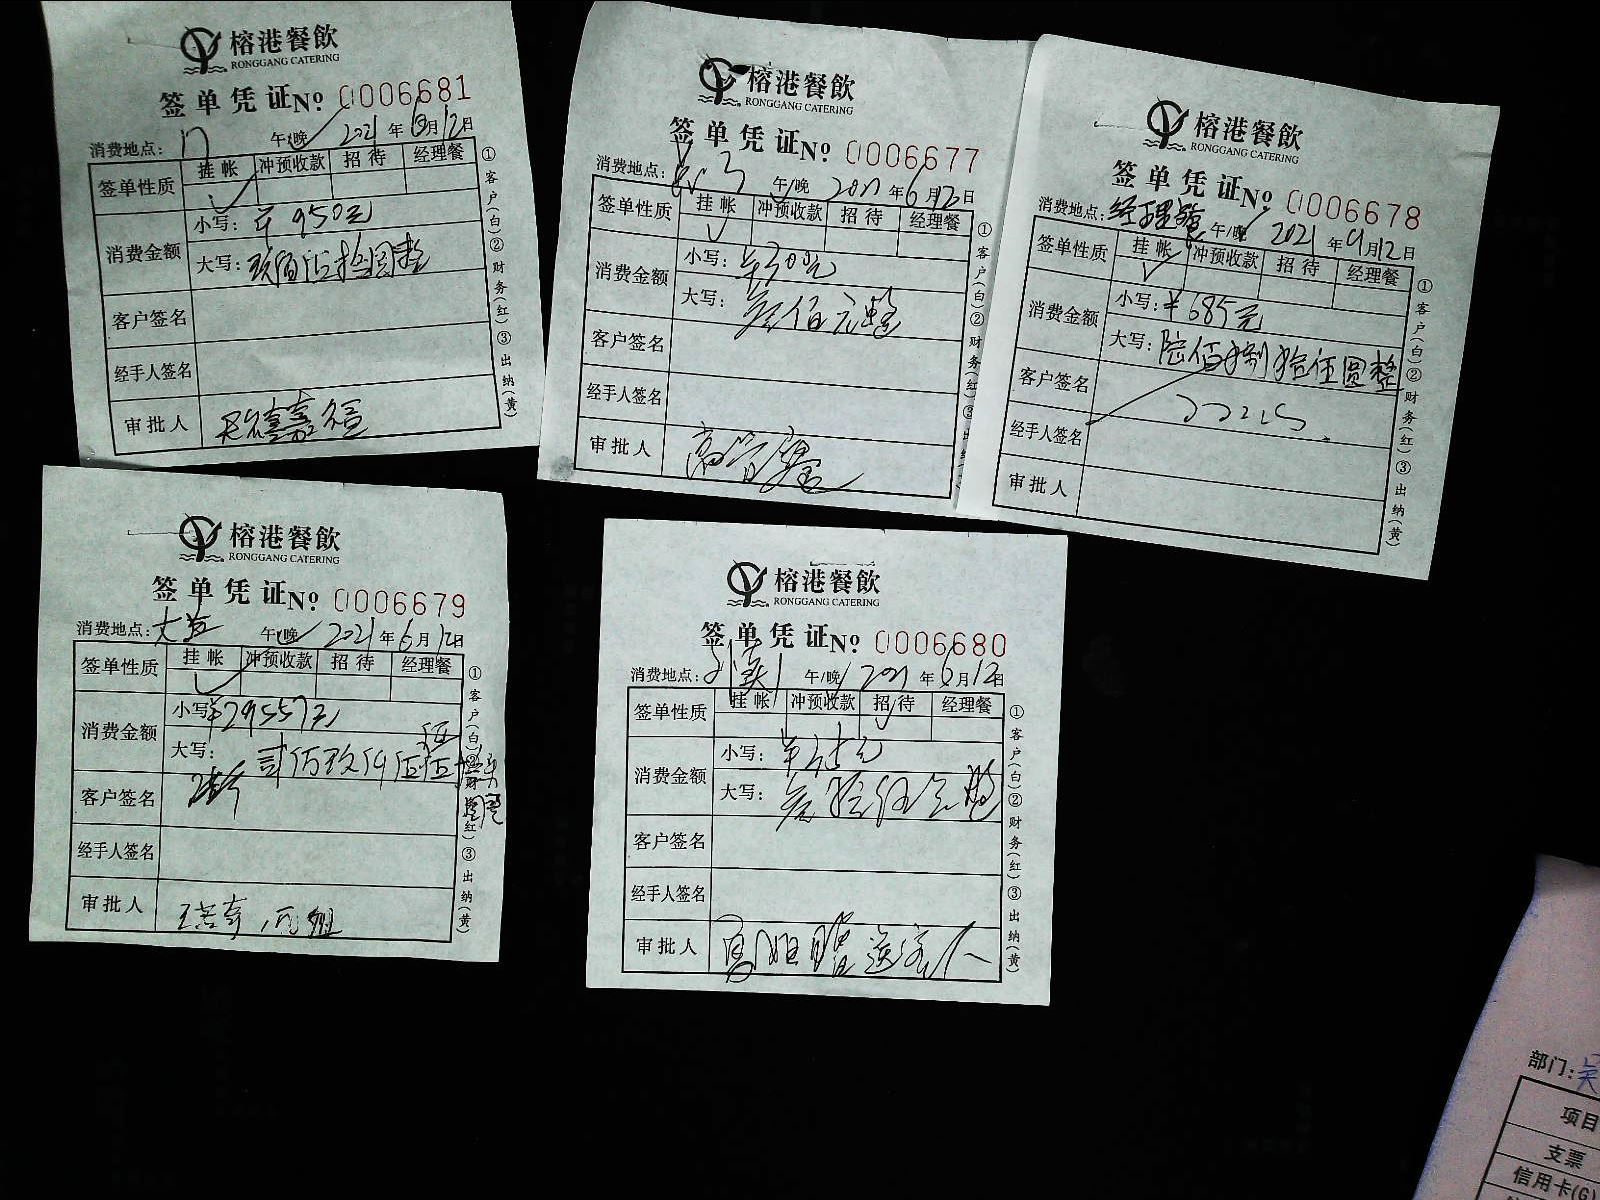 榕港餐飲
RONGGANG CATERING
签单凭证No 0006681
消费地点: 午/晚 2021年6月12日
签单性质 挂帐 冲预收款 招待 经理餐
消费金额 小写: ¥950元
大写: 玖佰伍拾圆整
客户签名
经手人签名
审批人
①客户(白)②财务(红)③出纳(黄)
榕港餐飲
RONGGANG CATERING
签单凭证No 0006677
消费地点: 午/晚 2021年6月12日
签单性质 挂帐 冲预收款 招待 经理餐
消费金额 小写: ¥300元
大写: 叁佰元整
客户签名
经手人签名
审批人
①客户(白)②财务(红)③出
榕港餐飲
RONGGANG CATERING
签单凭证No 0006678
消费地点: 经理餐 午/晚 2021年月12日
签单性质 挂帐 冲预收款 招待 经理餐
消费金额 小写: ¥685元
大写: 陆佰捌拾伍圆整
客户签名
经手人签名
审批人
①客户(白)②财务(红)③出纳(黄)
榕港餐飲
RONGGANG CATERING
签单凭证No 0006679
消费地点: 午/晚 2021年6月12日
签单性质 挂帐 冲预收款 招待 经理餐
消费金额 小写 ¥29557元
大写:
客户签名
经手人签名
审批人
①客户(白)②财务(红)③出纳(黄)
榕港餐飲
RONGGANG CATERING
签单凭证No 0006680
消费地点: 午/晚 2021年6月12日
签单性质 挂帐 冲预收款 招待 经理餐
消费金额 小写: ¥35元
大写: 叁拾伍元整
客户签名
经手人签名
审批人 送客人
①客户(白)②财务(红)③出纳(黄)
部门:
项目
支票
信用卡(G)